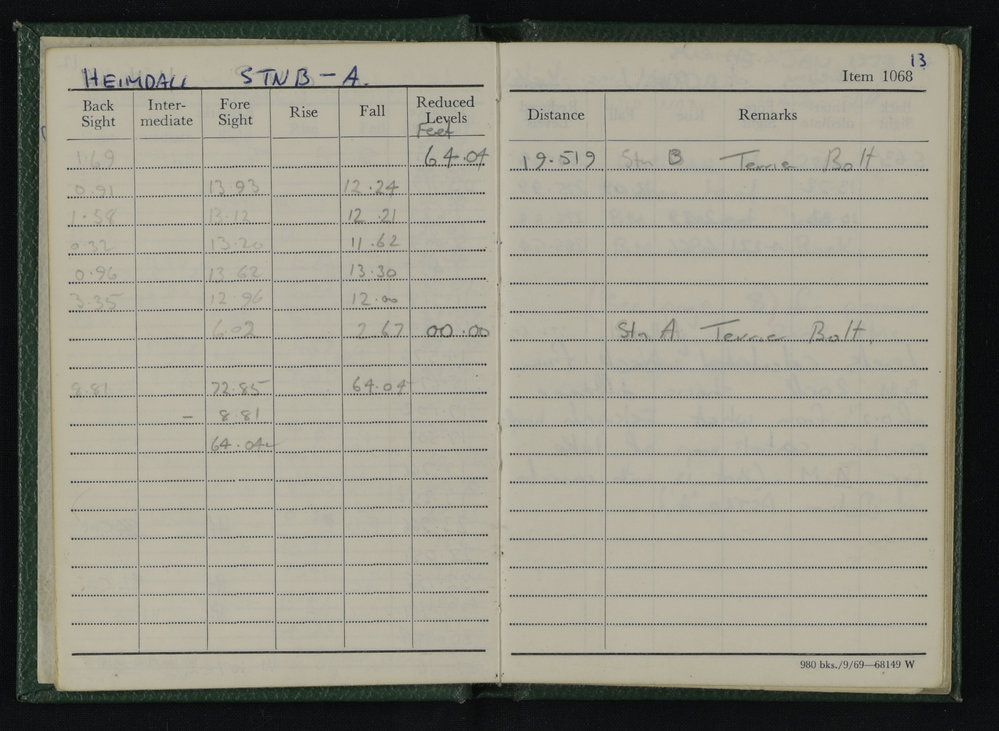 HEIMDALL STN B - A.
13
Item 1068
Back Sight Inter-mediate Fore Sight Rise Fall Reduced Levels Feet Distance Remarks
1.69 64.04 19.519 Stn B Terrier Bolt.
0.91 13.93 12.24
1.58 13.12 12.21
0.32 13.20 11.62
0.96 13.62 13.30
3.35 12.96 12.00
6.02 2.67 00.00 Stn A Terrier Bolt.
8.81 72.85 64.04
- 8.81
64.04
980 bks./9/69—68149 W